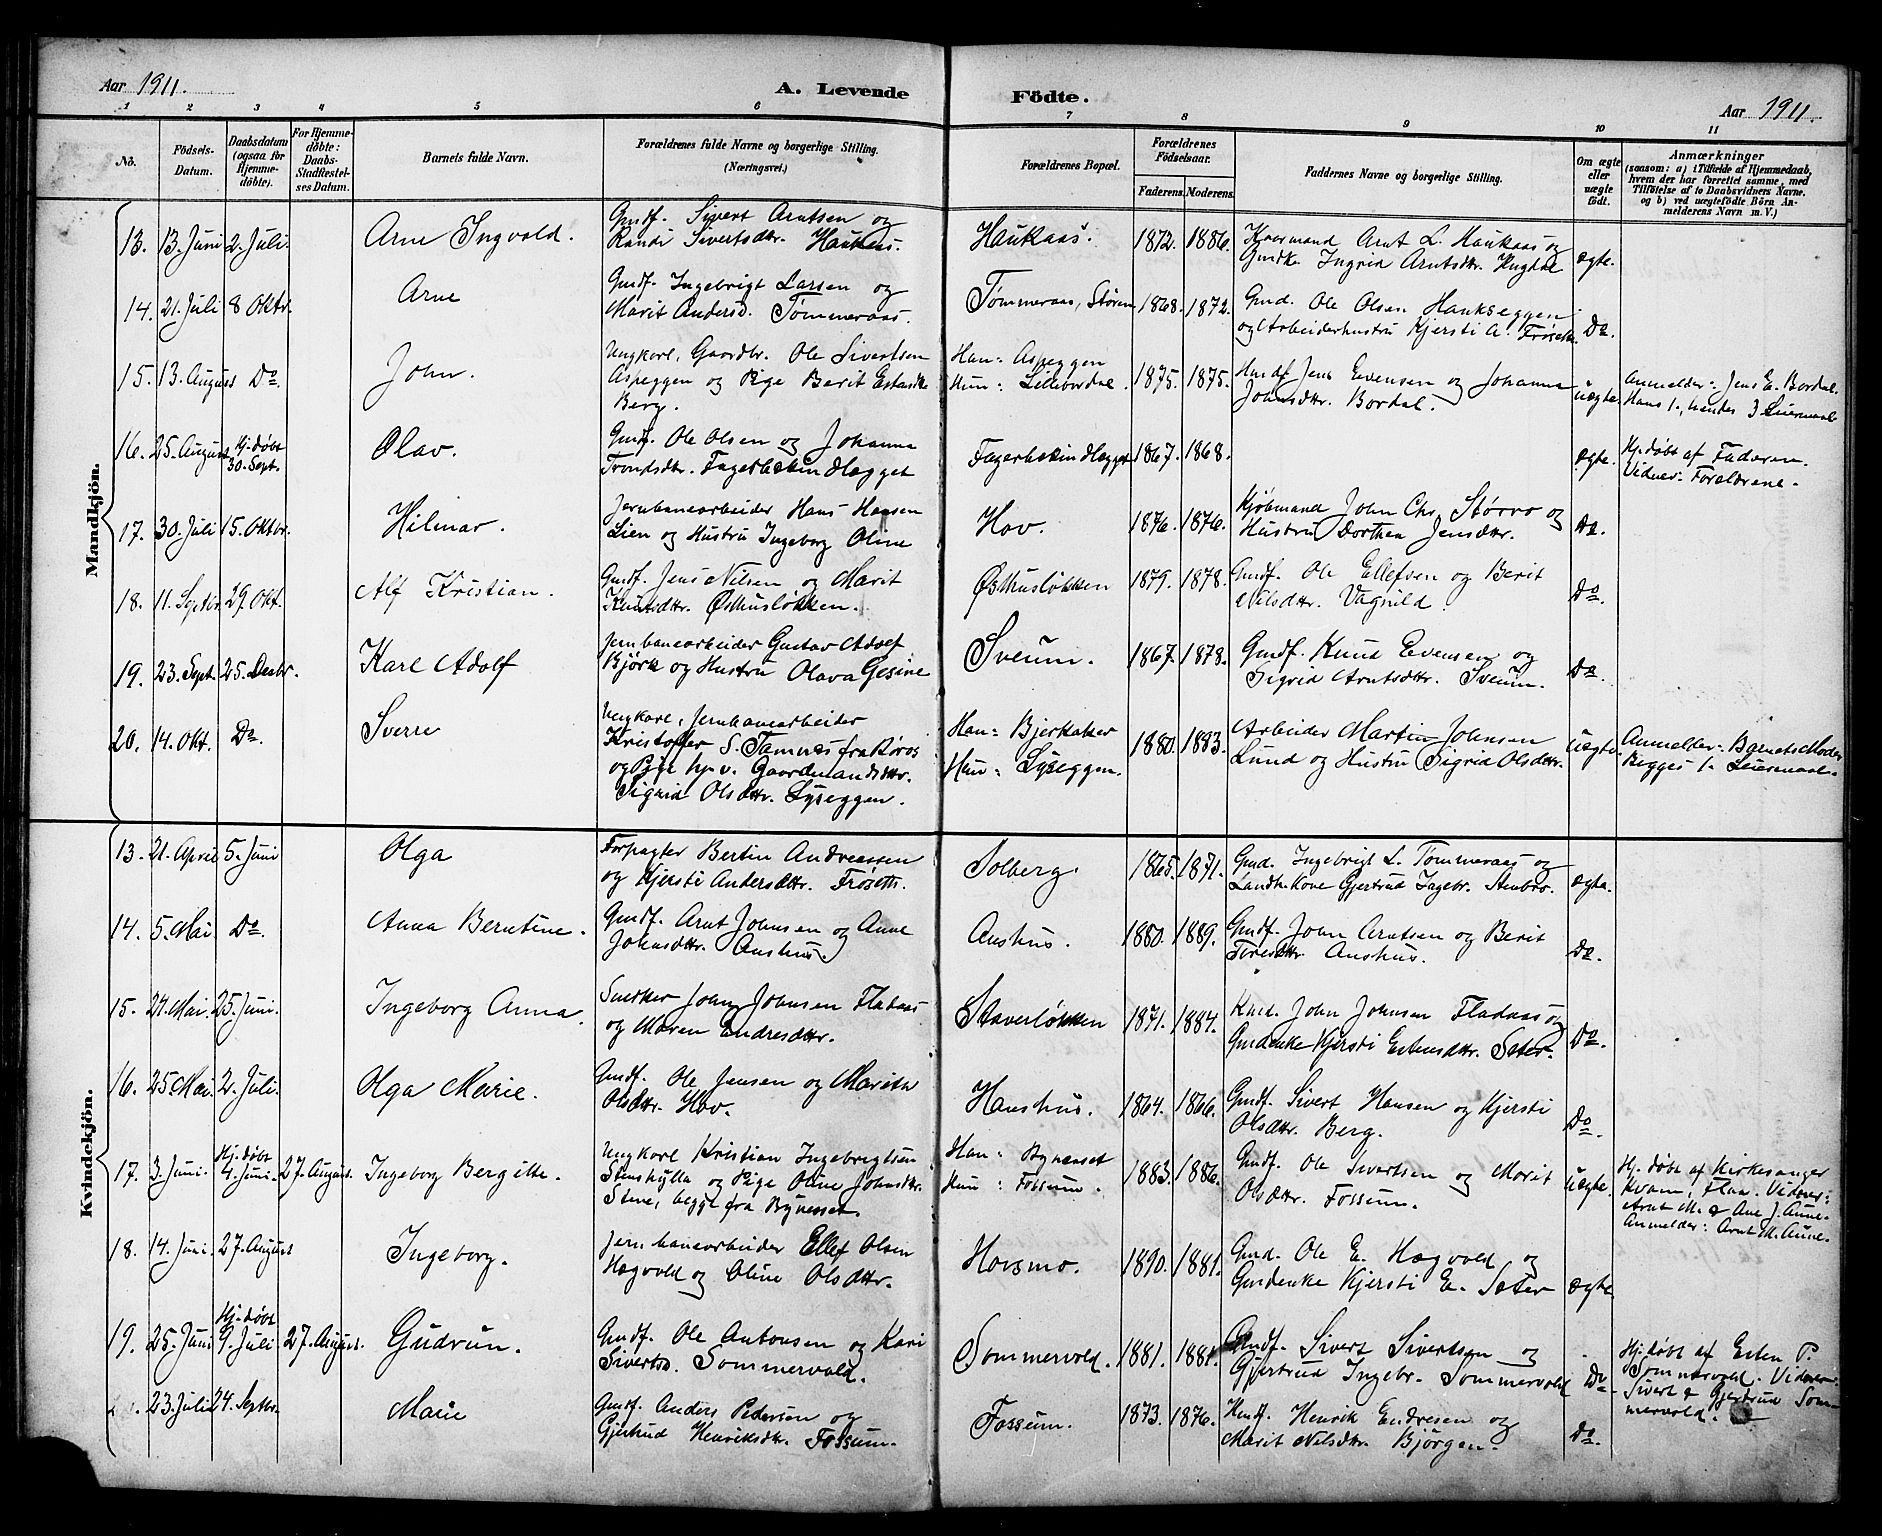 Aar 1911.
A. Levende Födte.
Aar 1911.
1 2 3 4 5 6 7 8 9 10 11
No.
Födsels-Datum.
Daabsdatum (ogsaa för Hjemmedöbte).
For Hjemmedöbte: Daabs-Stadfæstelses Datum.
Barnets fulde Navn.
Forældrenes fulde Navne og borgerlige Stilling. (Næringsvei.)
Forældrenes Bopæl.
Forældrenes Födselsaar.
Faderens. Moderens.
Faddernes Navne og borgerlige Stilling.
Om ægte eller uægte födt.
Anmærkninger
(saasom: a) i Tilfælde af Hjemmedaab, hvem der har forrettet samme, med Tilföielse af to Daabsvidners Navne. og b) ved uægtefödte Börn Anmelderens Navn m. V.)
Mandkjön.
13. 13. Juni 2. Juli. Arne Ingvald. Gmdf. Sivert Arntsen og
Randi Sivertsdtr. Haukaas. Haukaas. 1872. 1886. Kaarmand Arnt L. Haukaas og
Gmdke Ingrid Arntsdtr. Hugdal ægte.
14. 21. Juli 8 Oktr. Arne Gmdf. Ingebrigt Larsen og
Marit Andersd. Tømmeraas. Tømmeraas, Støren 1868. 1872. Gmd. Ole Olsen Haukseggen
og Arbeiderhustru Kjersti A. Frøseth. Do.
15. 13. August Do. John. Ungkarl, Gaardbr. Ole Sivertsen
Aspeggen og Pige Berit Estensdtr
Berg. Han: Aspeggen
Hun: Lillebordal. 1875. 1875. Gmdf Jens Evensen og Johanna
Johnsdtr. Bordal. uægte Anmelder: Jens E. Bordal.
Hans 1., hendes 3 Leiermaal
16. 25. August Hj. døbt
30. Sept. Olav. Gmdf. Ole Olsen og Johanna
Trondsdtr. Fagerbekin Hægget Fagerbekin Hægget 1867. 1868. ægte. Hj. døbt af Faderen.
Vidner: Forældrene.
17. 30. Juli 15. Oktbr. Hilmar. Jernbanearbeider Hans Hansen
Lien og Hustru Ingeborg Oline Hov. 1876. 1876. Kjøbmand John Chr. Størro og
Hustru Dorthea Jensdtr. Do.
18. 11. Septbr. 29. Okt. Alf Kristian. Gmdf. Jens Nilsen og Marit
Knutsdtr. Østhusløkken. Østhusløkken 1879. 1878. Gmdf. Ole Ellefsen og Berit
Nilsdtr. Vagnild. Do.
19. 23. Sept. 25. Desbr. Karl Adolf Jernbanearbeider Gustav Adolf
Bjørk og Hustru Olava Gesine Sveum. 1867. 1878. Gmdf. Knud Evensen og
Sigrid Arntsdtr. Sveum. Do.
20. 14. Okt. Do. Sverre Ungkarl, Jernbanearbeider
Kristoffer S. Tamnes fra Røros
og Pige hj. v. Gaardmandsdtr.
Sigrid Olsdtr. Lyseggen. Han: Bjerkaker
Hun: Lyseggen. 1880. 1883. Arbeider Martin Johnsen
Lund og Hustru Sigrid Olsdtr. Uægte. Anmelder: Barnets Moder
Begges 1. Leiermaal.
Kvindekjön.
13. 21. April 5. Juni Olga Forpagter Bertin Andreassen
og Kjersti Andersdtr. Frøseth. Solberg. 1865. 1871. Gmd. Ingebrigt L. Tømmeraas og
Landh. Kone Gjertrud Ingebr. Stenbro. ægte.
14. 5. Mai. Do. Anna Berntine. Gmdf. Arnt Johnsen og Anne
Johnsdtr. Aushus. Aushus. 1880. 1889. Gmdf. John Arntsen og Berit
Toresdtr Aushus. Do.
15. 27. Mai. 25. Juni. Ingeborg Anna. Snekker John Johnsen Fladaas
og Maren Endresdtr. Staverløkken 1871. 1884. Kaard. John Johnsen Fladaas og
Gmdenke Kjersti Estensdtr. Seter. Do.
16. 25. Mai. 2. Juli. Olga Marie. Gmdf. Ole Jensen og Marith
Olsdtr. Hov. Hanshus. 1864. 1866. Gmdf. Sivert Hansen og Kjersti
Olsdtr. Berg. Do.
17. 3. Juni. Hj. døbt
4. Juni. 27. August. Ingeborg Bergitte. Ungkarl Kristian Ingebrigtsen
Stenshylla og Pige Oline Johnsdtr.
Stene, begge fra Bynesset. Han: Bynesset
Hun: Fossum. 1883. 1886. Gmdf. Ole Sivertsen og Marit
Olsdtr. Fossum. uægte. Hj. døbt af Kirkesanger
Kvam, Flaa. Vidner:
Arnt M. & Ane J. Aune.
Anmelder: Arnt M. Aune.
18. 14. Juni. 27. August Ingeborg. Jernbanearbeider Ellef Olsen
Hægvold og Oline Olsdtr. Hovsmo. 1890. 1881. Gmd. Ole E. Hægvold og
Gmdenke Kjersti E. Seter ægte
19. 25. Juni Hj. døbt
9. Juli 27. August. Gudrun. Gmdf. Ole Antonsen og Kari
Sivertsd. Sommervold. Sommervold. 1881. 1881. Gmdf. Sivert Sivertsen og
Gjertrud Ingebr. Sommervold Do. Hj. døbt af Esten P.
Sommervold. Vidner:
Sivert & Gjertrud Som-
mervold.
23. Juli 24. Septbr. Marie Gmdf. Anders Pedersen og
Gjertrud Henriksdtr. Fossum. Fossum. 1873. 1876. Gmdf. Henrik Endresen og
Marit Nilsdtr. Bjørgen. Do.